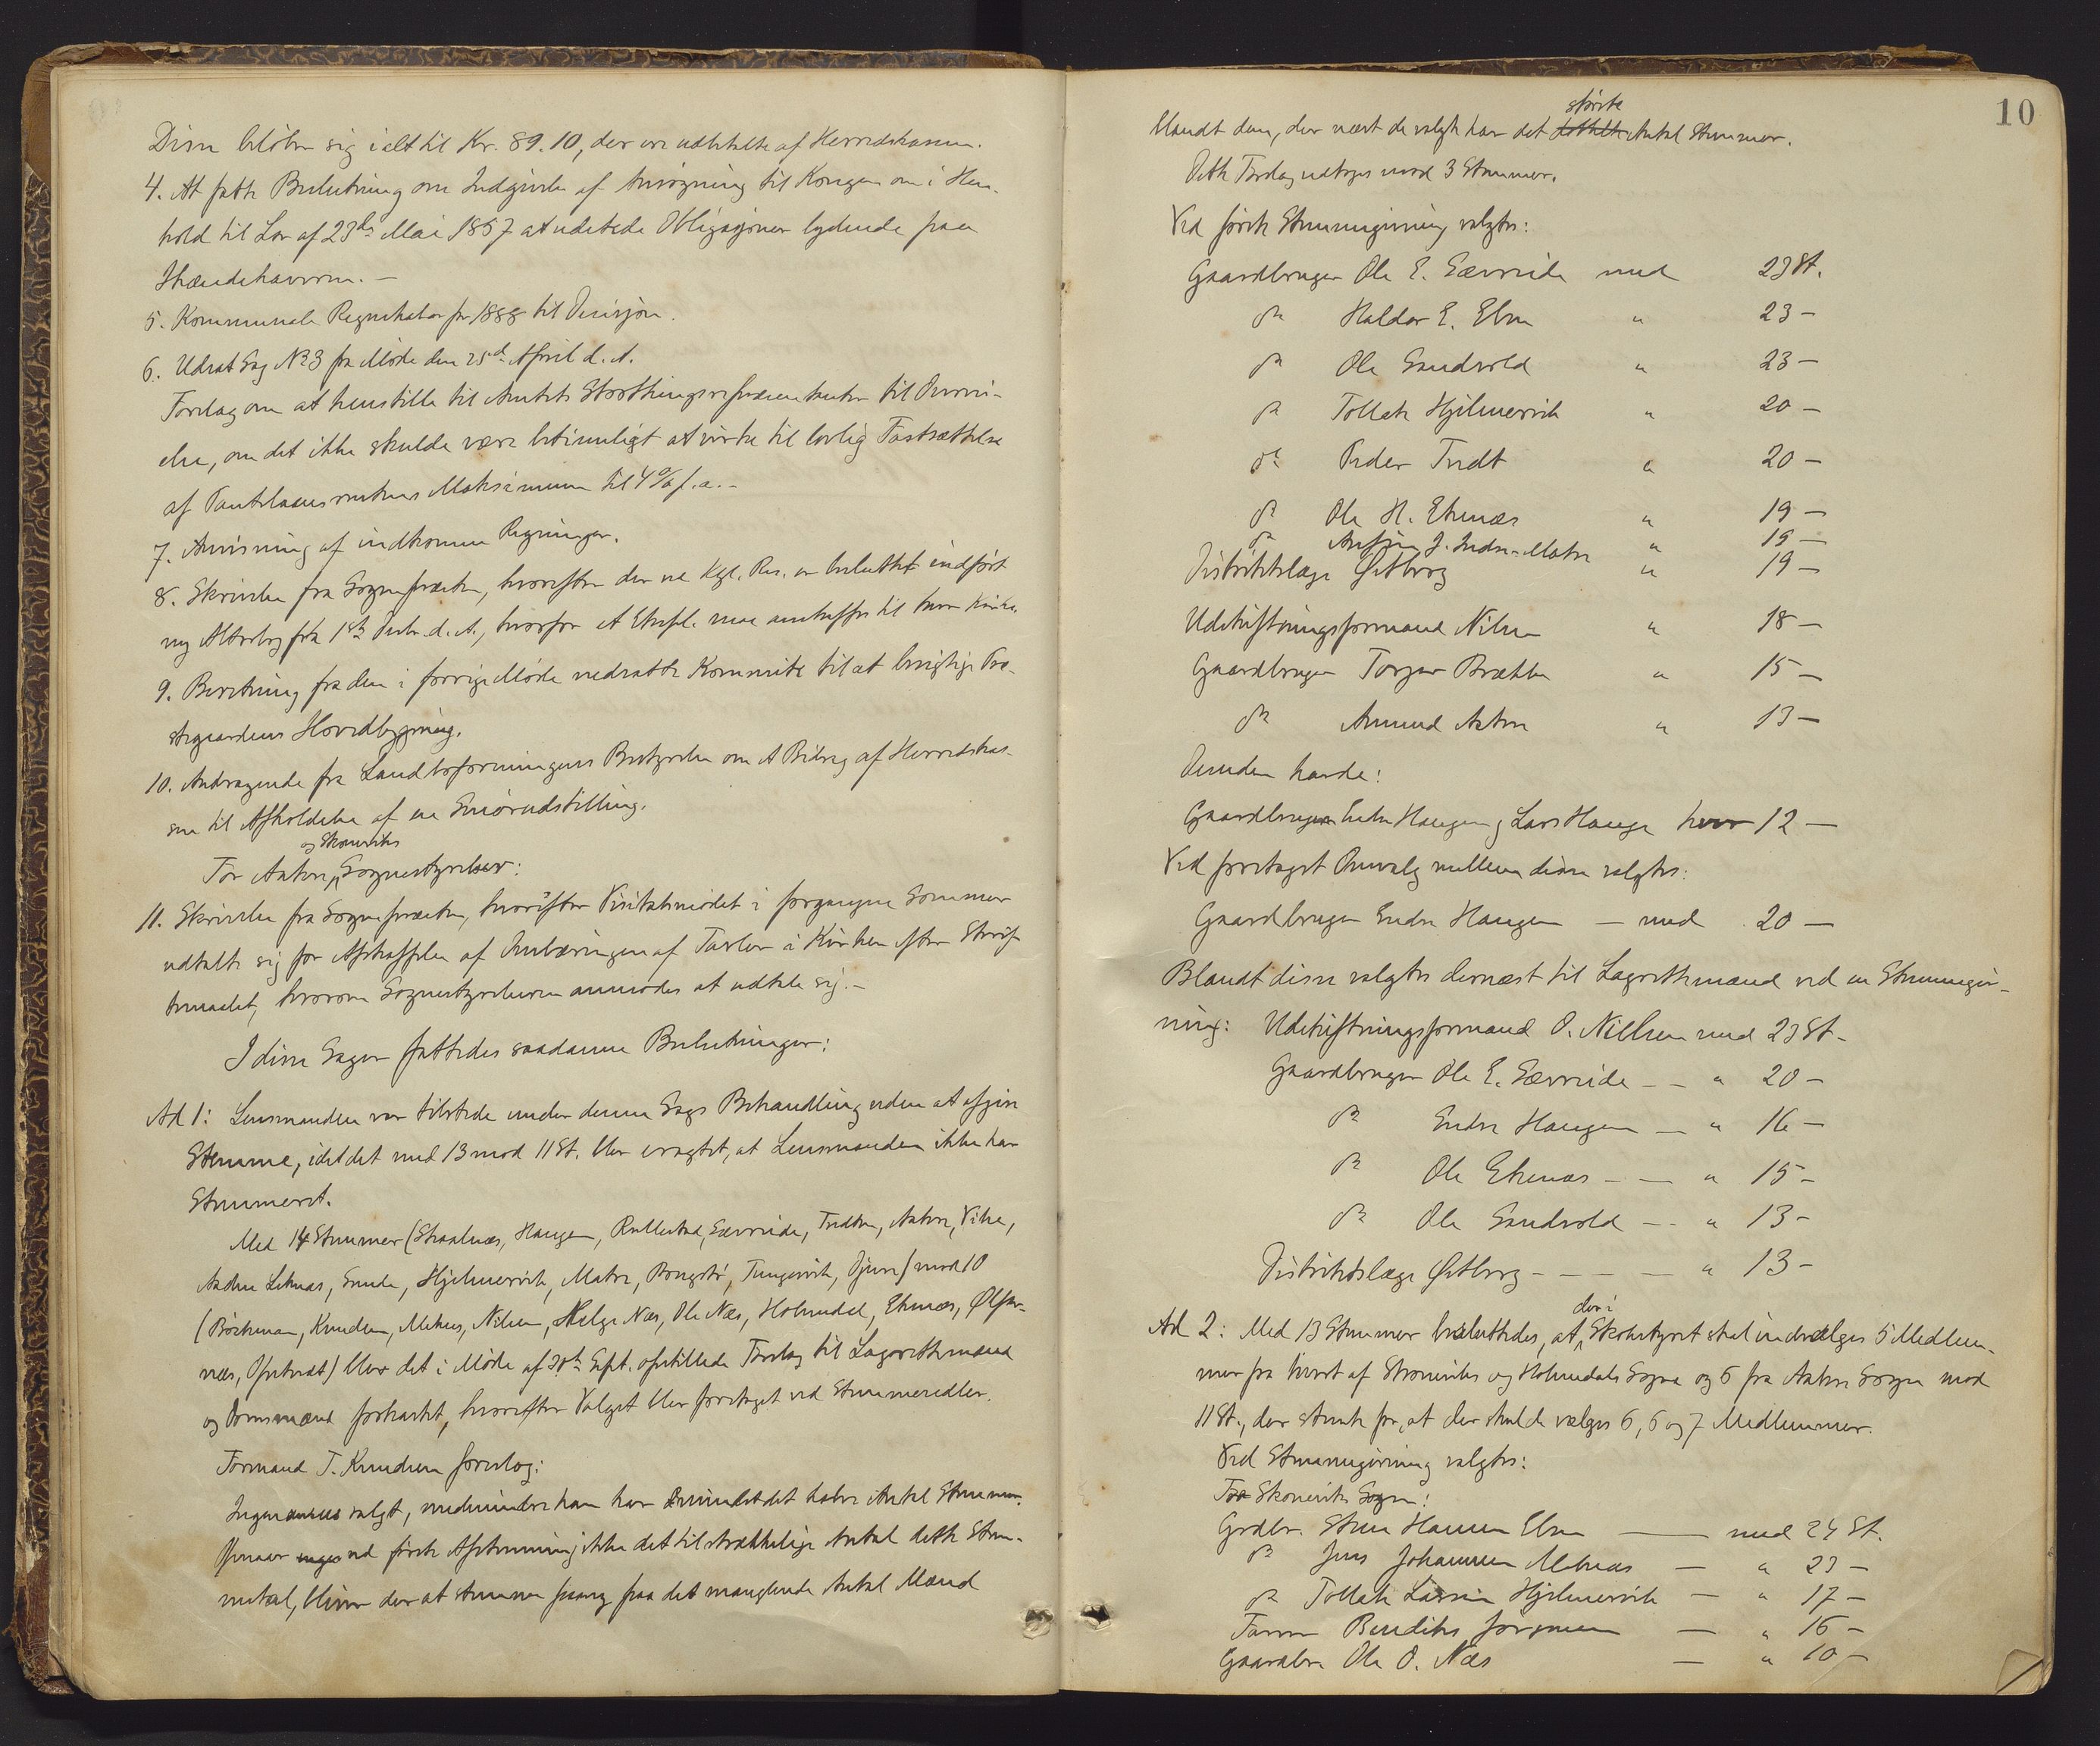 Disse beløber sig ialt til Kr. 89.10, der ere udbetalte af Herredskassen.
4. At fatte Beslutning om Indgivelse af Ansøgning til Kongen om i Hen-
hold til Lov af 23de Mai 1857 at udstede Obligasjoner lydende paa
Ihændehaveren. —
5. Kommunale Regnskaber for 1888 til Desisjon.
6. Udsat Sag No 3 fra Møde den 25de April d. A.
Forslag om at henstille til Amtets Storthingsrepræsentanter til Overvei-
else, om det ikke skulde være betimeligt at virke til lovlig Fastsættelse
af Pantelaansrentens Maksimum til 4 % p. a. —
7. Anvisning af indkomne Regninger.
8. Skrivelse fra Sognepræsten, hvorefter der ved Kgl. Res. er besluttet indført
ny Alterbog fra 1ste Decbr. d. A., hvorfor et Ekspl. maa anskaffes til hver Kirke.
9. Beretning fra den i forrige Møde nedsatte Kommite til at besigtige Præ-
stegaardens Hovedbygning.
10. Andragende fra Landboforeningens Bestyrelse om et Bidrag af Herredskas-
sen til Afholdelse af en Smørudstilling.
og Skoneviks
For Aakre Sognestyrelser:
11. Skrivelse fra Sognepræsten, hvorefter Visitatsmødet i forgangne Sommer
udtalte sig for Afskaffelse af Ombæringen af Tavler i Kirken efter Skrif-
temaalet, hvorom Sognestyrelserne anmodes at udtale sig. —
I disse Sager fattedes saadanne Beslutninger:
Ad 1: Lensmanden var tilstede under denne Sags Behandling uden at afgive
Stemme, idet det med 13 mod 11 St. blev eragtet, at Lensmanden ikke har
Stemmeret.
Med 14 Stemmer (Skaalnæs, Haugen, Rullestad, Sævreide, Tredten, Aakre, Vike,
Leknæs, Eneste, Hjelmervik, Matre, Tungesvik, Djuve) mod 10
(Böckman, Knudsen, Mehus, Nilsen, Helge Næs, Ole Næs, Holmedal, Ekenæs, Ølfær-
næs, Opstveit) blev det i Møde af 30te Sept. opstillede Forslag til Lagrettemænd
og Domsmænd forkastet, hvorefter Valget blev foretaget ved Stemmesedler.
Formand T. Knudsen foreslog:
Ingen ansees valgt, medmindre han har mindst det halve Antal Stemmer.
Opnaar ved første Afstemning ikke det tilstrækkelige Antal dette Stem-
metal, bliver der at stemme paany paa det manglende Antal Mænd
10
største
blandt dem, der næst de valgte har det Antal Stemmer.
Dette Forslag vedtoges mod 3 Stemmer.
Ved første Stemmegivning valgtes:
Gaardbruger Ole E. Sævreide med 23 St.
do Haldor E. Ebne " 23 —
do Ole Sandvold " 23 —
do Tollak Hjelmervik " 20 —
do Peder Tredt " 20 —
do Ole H. Ekenæs " 19 —
do Anfin J. Indre-Matre " 19 —
Distriktslæge Østberg " 19 —
Udskiftningsformand Nilsen " 18 —
Gaardbruger Torger Brække " 15 —
do Amund Aakre " 13 —
Desuden havde:
Gaardbruger Endre Haugen og Lars Hauge hver 12 —
Ved foretaget Omvalg mellem disse valgtes:
Gaardbruger Endre Haugen — med 20 —
Blandt disse valgtes dernæst til Lagrettemænd ved en Stemmegiv-
ning: Udskiftningsformand O. Nilsen med 23 St. —
Gaardbruger Ole E. Sævreide — — " 20 —
do Endre Haugen — " 16 —
do Ole Ekenæs — — " 15 —
do Ole Sandvold — — " 13 —
Distriktslæge Østberg — — — — " 13 —
der i
Ad 2: Med 13 Stemmer besluttedes, at Skolestyret skal indvælges 5 Medlem-
mer fra hvert af Skoneviks og Holmedals Sogne og 6 fra Aakre Sogn mod
11 St., der stemte for, at der skulde vælges 6, 6 og 7 Medlemmer.
Ved Stemmegivning valgtes:
For Skoneviks Sogn:
Grdbr. Sten Hansen Ebne — med 24 St.
do Jens Johannesen Milnæs — " 23 —
do Tollak Larsen Hjelmervik — " 17 —
Benedikt — " 16 —
Gaardbr. Ole O. Næs — " 10 —